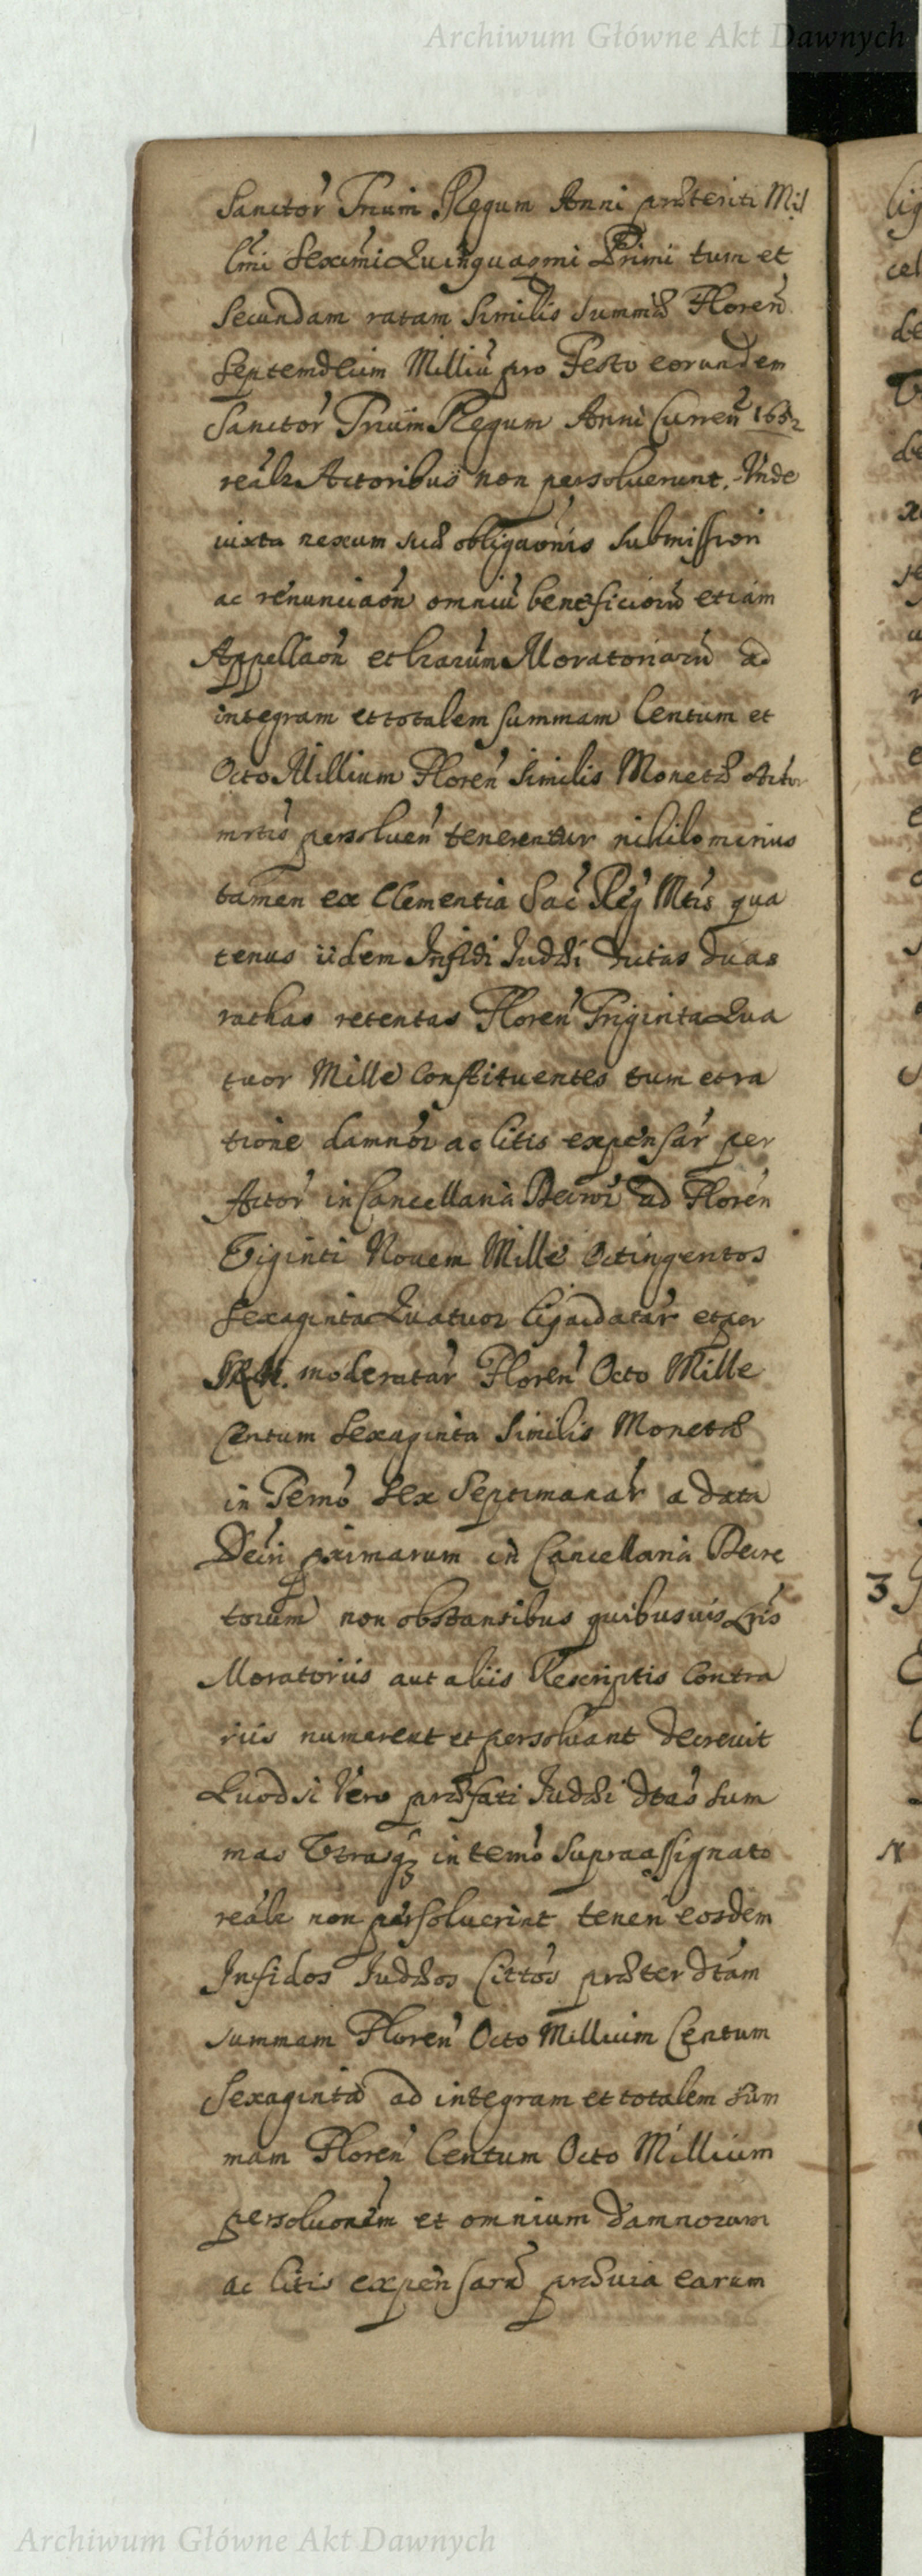 Archiwum Główne Akt Dawnych
Sanctor Trium Regum Anni præteriti Mil
lmi Sexmi Quinquagmi Primi tum et
Secundam ratam Similis Summæ Floren
Septemdecim Milliu pro Festo eorundem
Sanctor Trium Regum Anni Curren 1652
realr Actoribus non persoluerunt. Unde
iuxta nexum suæ obligaonis Submission
ac renunciaon omniu beneficioru etiam
Appellaon et lrarum Moratoriaru ad
integram et totalem summam Centum et
Octo Millium Floren Similis Monetæ Actor
persoluen tenerentur nihilominus
tamen ex Clementia Sac Reg Mtis qua
tenus iidem Infidi Judæi dictas duas
rathas retentas Floren Triginta Qua
tuor Mille Constituentes tum et ra
tione damnor ac litis expensar per
Actor in Cancellaria Decror ad Floren
Viginti Novem Mille Octingentos
Sexaginta Quatuor liquidatar et per
SRM. moderatar Floren Octo Mille
Centum Sexaginta Similis Monetæ
in Termo Sex Septimanar a data
Decti pximarum in Cancellaria Decre
torum non obstantibus quibusuis Lris
Moratoriis aut aliis Rescriptis Contra
riis numerent et persoluant decreuit
Quod si Vero præfati Judæi dtas Sum
mas Vtrasq in termo Supraassignato
realr non persoluerint tenen eosdem
Infidos Judæos Cittos præter dtam
summam Floren Octo Millium Centum
Sexaginta ad integram et totalem Sum
mam Floren Centum Octo Millium
persoluonem et omnium damnorum
ac litis expensaru præuia earum
3
Archiwum Główne Akt Dawnych